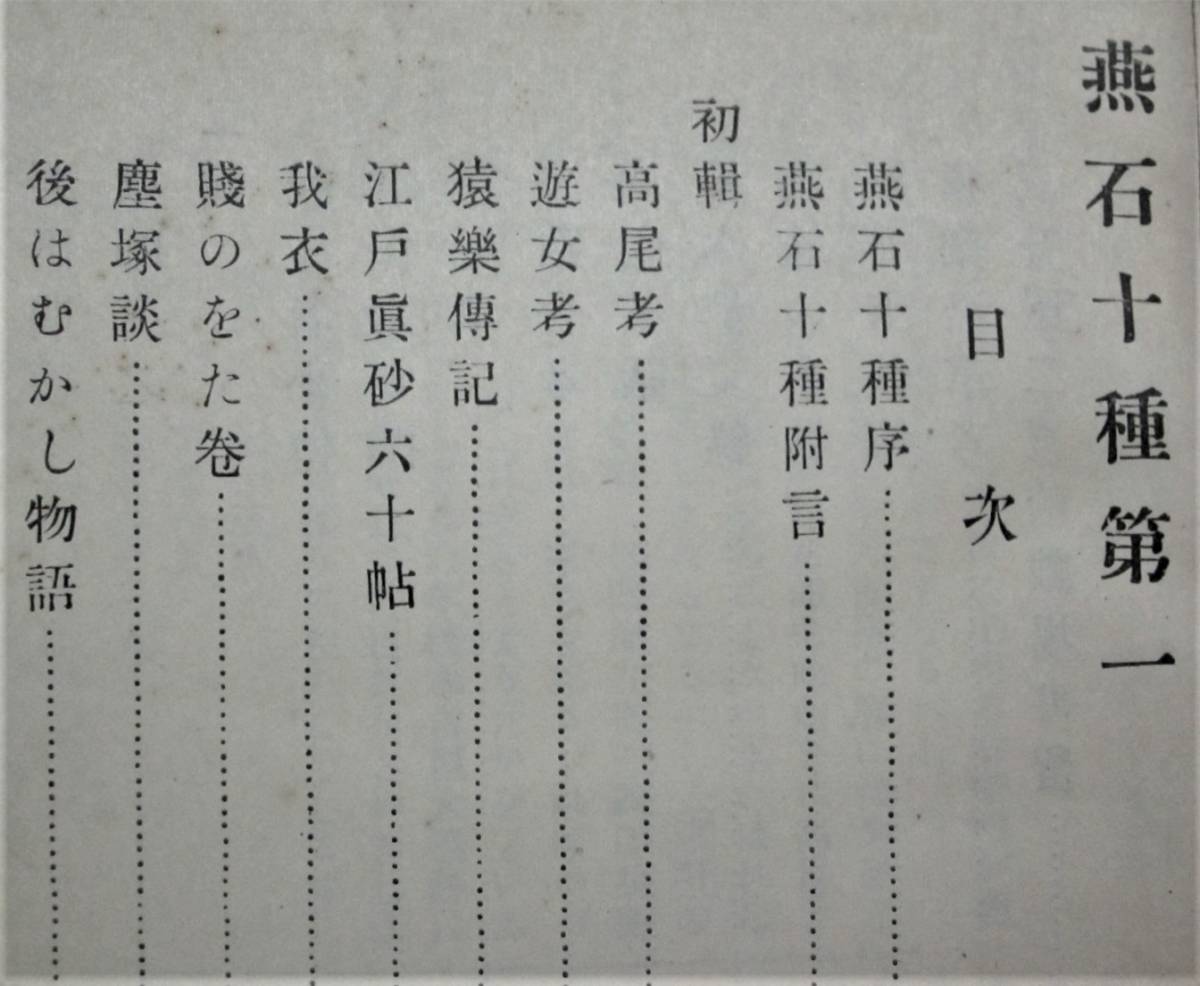 燕石十種第一
目次
燕石十種序
燕石十種附言
初輯
高尾考
遊女考
猿樂傳記
江戸眞砂六十帖
我衣
賤のをた卷
塵塚談
後はむかし物語